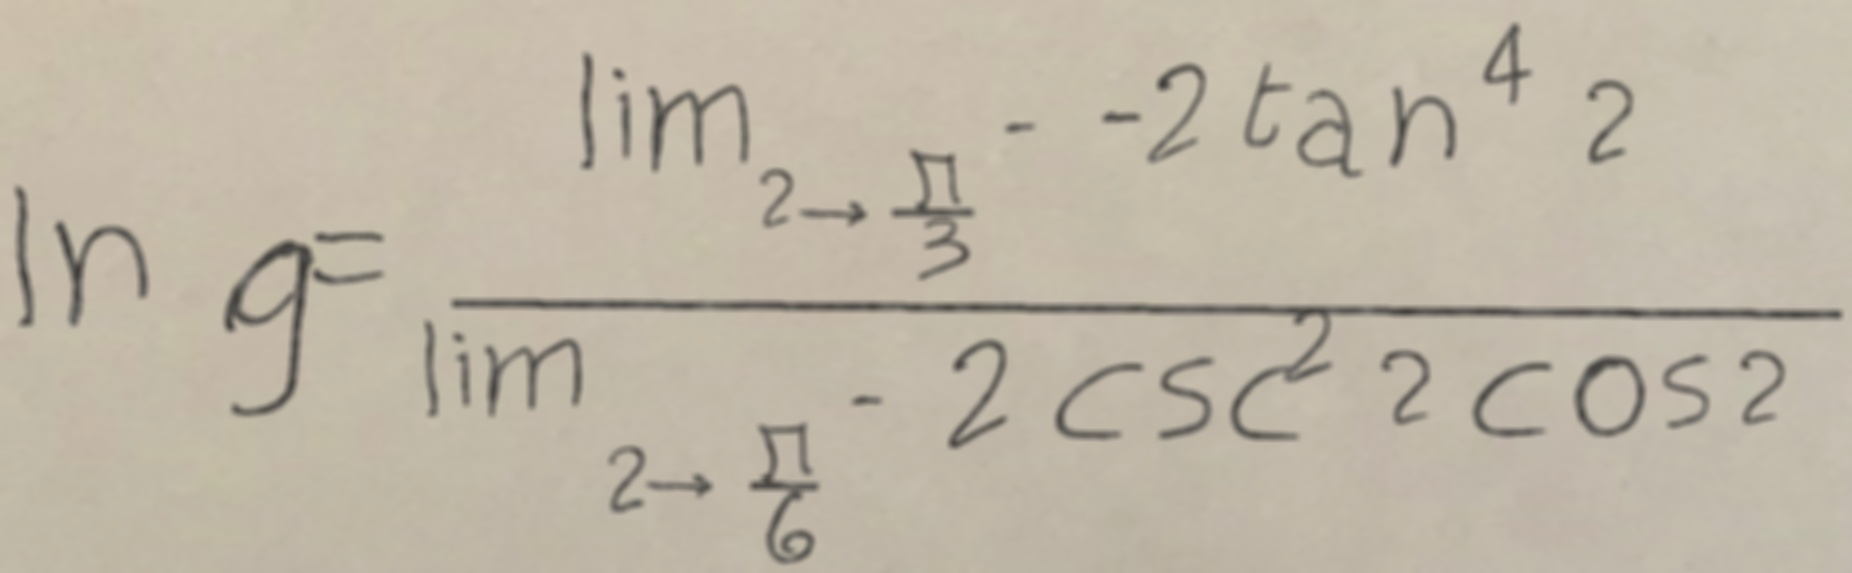 \ln g = \frac{\lim_{z \to \frac{\pi}{3}^-} -2 \tan^4 z}{\lim_{z \to \frac{\pi}{6}^-} 2 \csc^2 z \cos z}